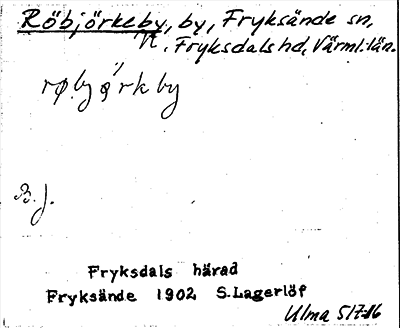 Röbjörkeby, by, Fryksände sn,
Fryksdals hd, Värml. län.
B.J.
Fryksdals härad
Fryksände 1902 S.Lagerlöf
Ulma 517:16